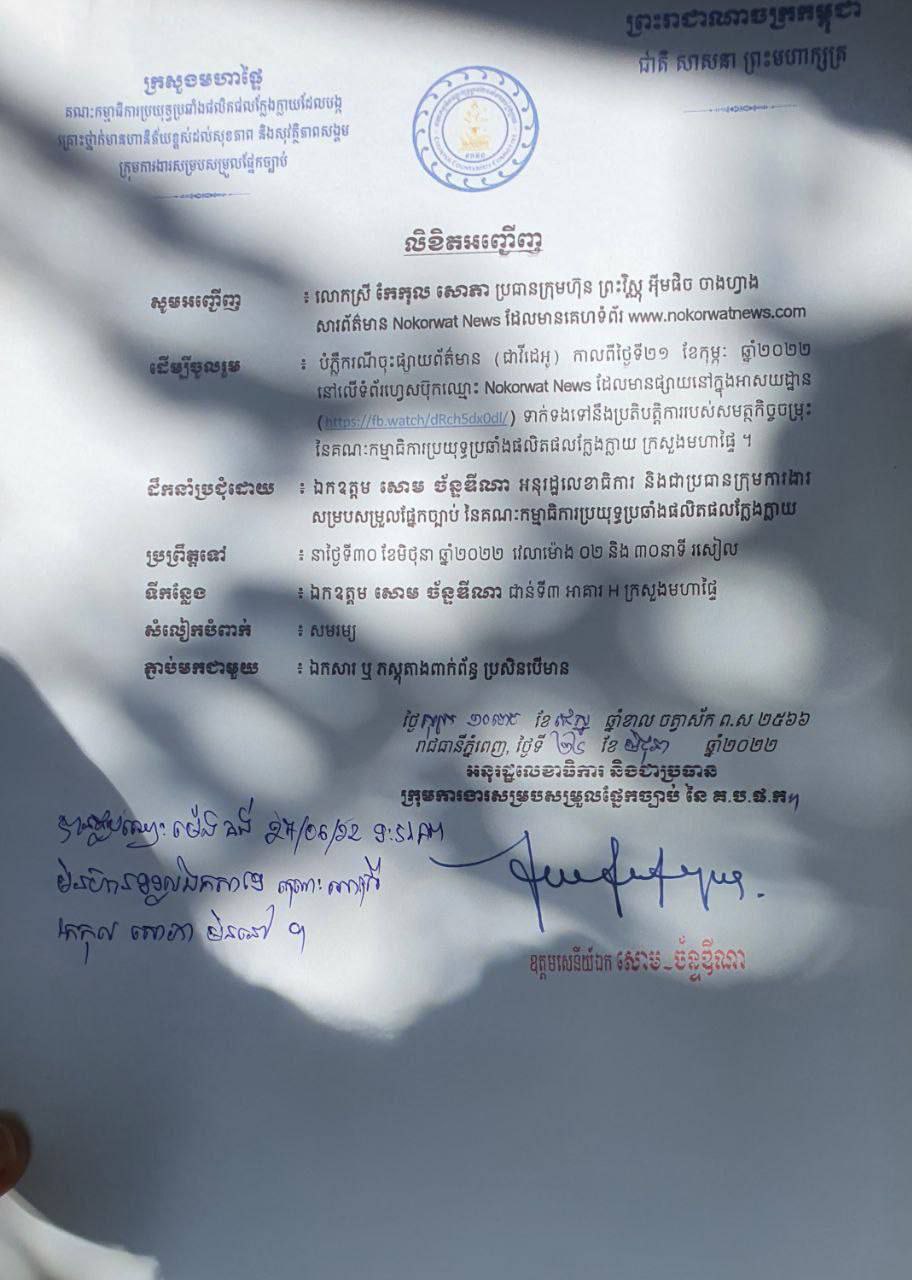 ព្រះរាជាណាចក្រកម្ពុជា
ជាតិ សាសនា ព្រះមហាក្សត្រ
ក្រសួងមហាផ្ទៃ
គណៈកម្មាធិការប្រយុទ្ធប្រឆាំងផលិតផលក្លែងក្លាយដែលបង្ក
គ្រោះថ្នាក់មានហានិភ័យខ្ពស់ដល់សុខភាព និងសុវត្ថិភាពសង្គម
ក្រុមការងារសម្របសម្រួលផ្នែកច្បាប់
លិខិតអញ្ជើញ
សូមអញ្ជើញ ៖ លោកស្រី កែកុល សោភា ប្រធានក្រុមហ៊ុន ព្រះវិស្ណុ អ៊ីមផិច ចាងហ្វាង
សារព័ត៌មាន Nokorwat News ដែលមានគេហទំព័រ www.nokorwatnews.com
ដើម្បីចូលរួម ៖ បំភ្លឺករណីចុះផ្សាយព័ត៌មាន (ជាវីដេអូ) កាលពីថ្ងៃទី២១ ខែកុម្ភៈ ឆ្នាំ២០២២
នៅលើទំព័រហ្វេសប៊ុកឈ្មោះ Nokorwat News ដែលមានផ្សាយនៅក្នុងអាសយដ្ឋាន
(https://fb.watch/dRch5dx0dl/) ទាក់ទងទៅនឹងប្រតិបត្តិការរបស់សមត្ថកិច្ចចម្រុះ
នៃគណៈកម្មាធិការប្រយុទ្ធប្រឆាំងផលិតផលក្លែងក្លាយ ក្រសួងមហាផ្ទៃ ។
ដឹកនាំប្រជុំដោយ ៖ ឯកឧត្តម សោម ច័ន្ទឌីណា អនុរដ្ឋលេខាធិការ និងជាប្រធានក្រុមការងារ
សម្របសម្រួលផ្នែកច្បាប់ នៃគណៈកម្មាធិការប្រយុទ្ធប្រឆាំងផលិតផលក្លែងក្លាយ
ប្រព្រឹត្តទៅ ៖ នាថ្ងៃទី៣០ ខែមិថុនា ឆ្នាំ២០២២ វេលាម៉ោង ០២ និង ៣០នាទី រសៀល
ទីកន្លែង ៖ ឯកឧត្តម សោម ច័ន្ទឌីណា ជាន់ទី៣ អាគារ H ក្រសួងមហាផ្ទៃ
សំលៀកបំពាក់ ៖ សមរម្យ
ភ្ជាប់មកជាមួយ ៖ ឯកសារ ឬ ភស្តុតាងពាក់ព័ន្ធ ប្រសិនបើមាន
ថ្ងៃសុក្រ ១០រោច ខែជេស្ឋ ឆ្នាំខាល ចត្វាស័ក ព.ស ២៥៦៦
រាជធានីភ្នំពេញ, ថ្ងៃទី ២៤ ខែ មិថុនា ឆ្នាំ២០២២
អនុរដ្ឋលេខាធិការ និងជាប្រធាន
ក្រុមការងារសម្របសម្រួលផ្នែកច្បាប់ នៃ គ.ប.ផ.ក
មិនហ៊ានទទួលឯកសារទេ ព្រោះ លោកស្រី
កែកុល សោភា មិននៅ ។
ឧត្តមសេនីយ៍ឯក សោម-ច័ន្ទឌីណា